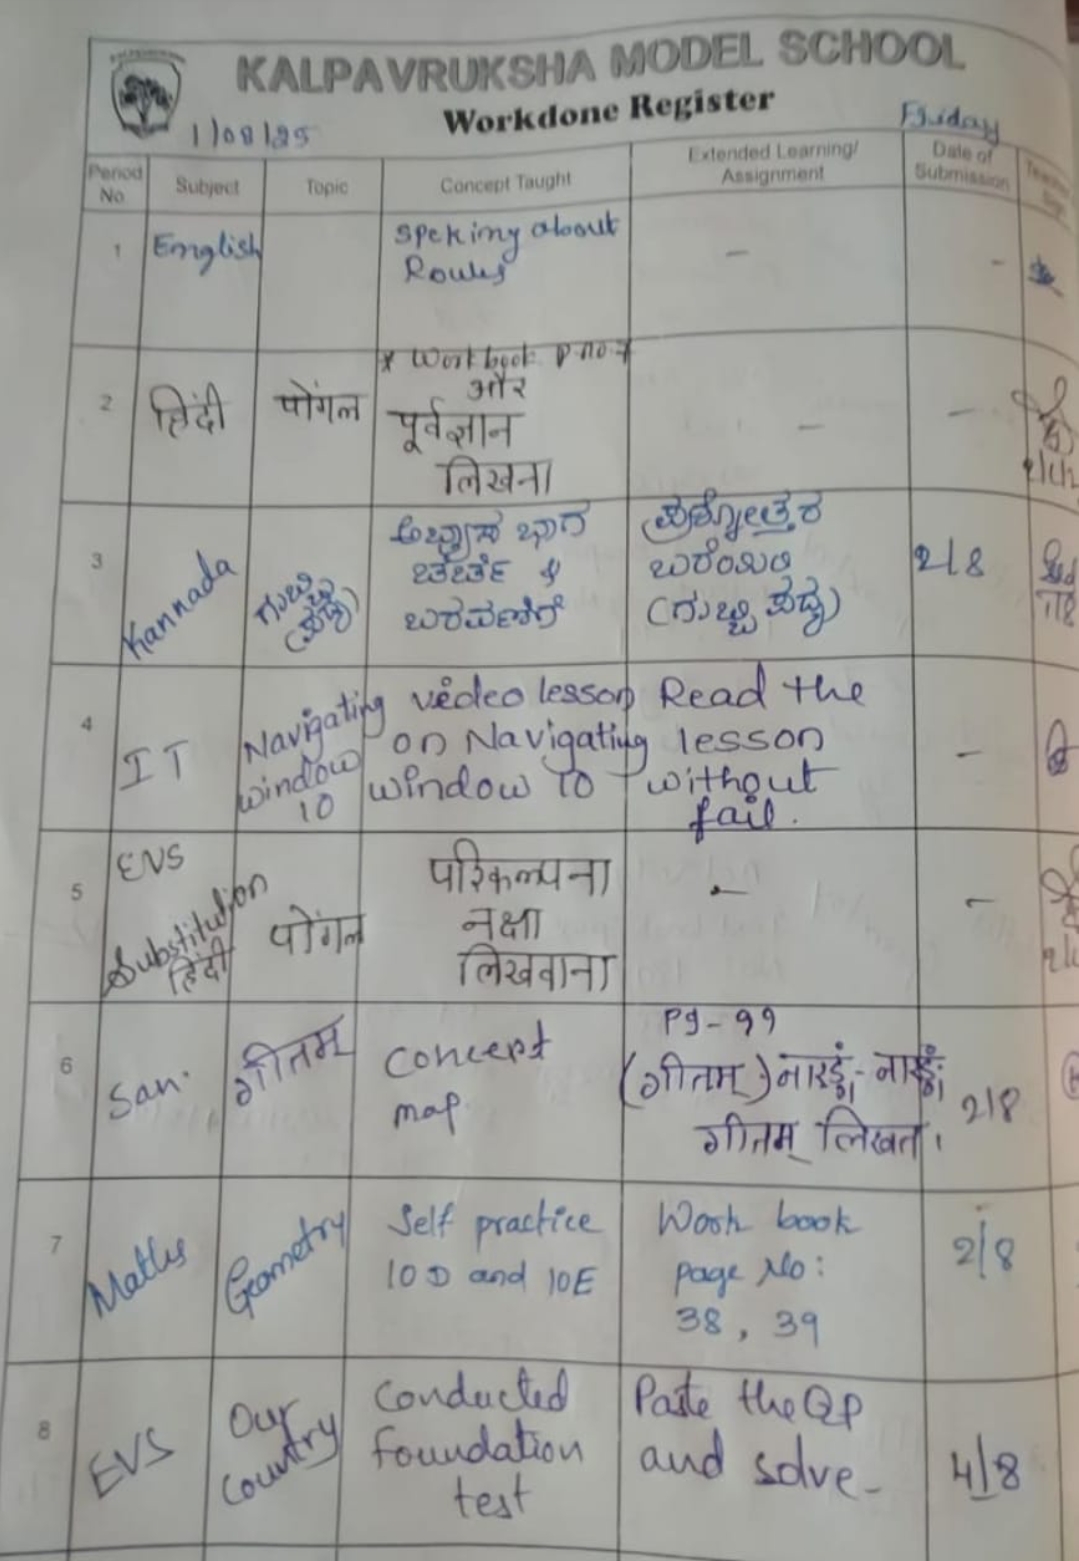 KALPAVRUKSHA MODEL SCHOOL
Workdone Register
1/08/25
Friday
Period No
Subject
Topic
Concept Taught
Extended Learning/ Assignment
Date of Submission
1
English
Speking about
Roules
-
-
2
हिंदी
पोंगल
* Work book p no 7
और
पूर्वज्ञान
लिखना
-
-
3
Kannada
ಗುಬ್ಬಚ್ಚಿ
(ಪದ್ಯ)
ಅಭ್ಯಾಸ ಭಾಗ
ಚರ್ಚೆ &
ಬರವಣಿಗೆ
ಪ್ರಶ್ನೋತ್ತರ
ಬರೆಯಿರಿ
(ಗುಬ್ಬಚ್ಚಿ ಪದ್ಯ)
2/8
4
IT
Navigating
window
10
video lesson
on Navigating
window 10
Read the
lesson
without
fail.
-
5
EVS
Substitution
हिंदी
पोंगल
परिकल्पना
नक्षा
लिखवाना
-
-
6
San.
गीतम्
Concept
map
Pg - 99
गीतम् लिखत।
2/8
7
Maths
Geometry
Self practice
10D and 10E
Work book
page No:
38, 39
2/8
8
EVS
Our
Country
Conducted
foundation
test
Paste the QP
and solve-
4/8